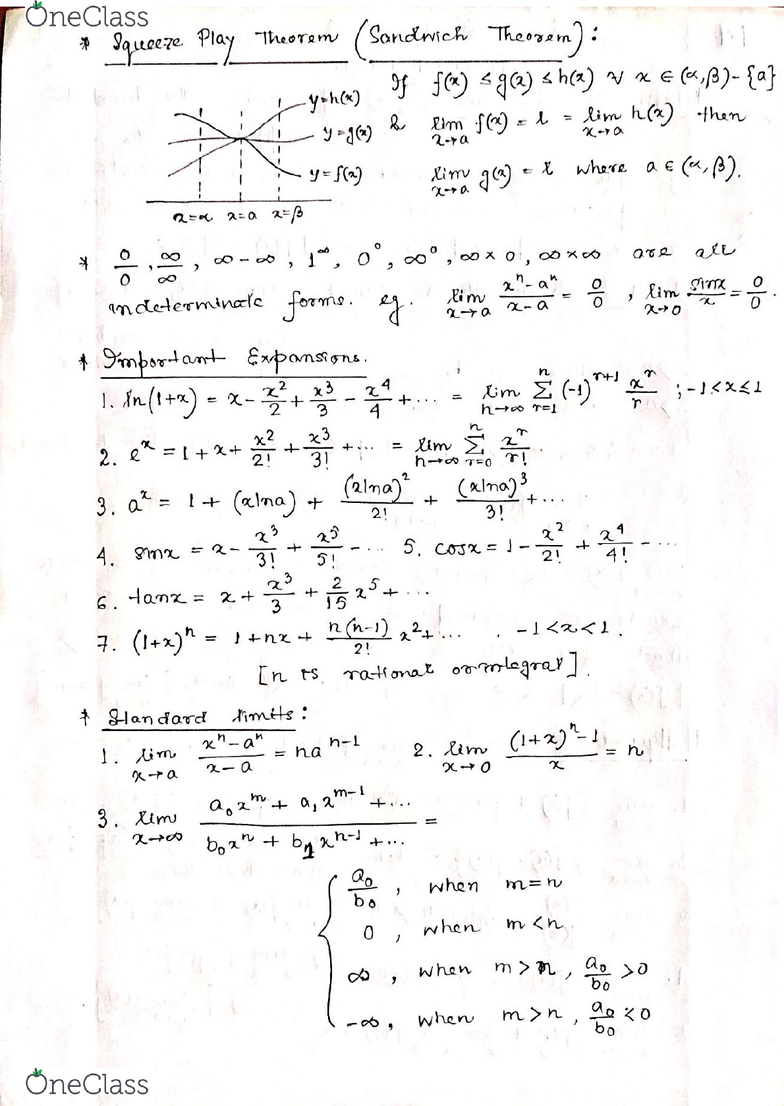 OneClass
* Squeeze Play Theorem (Sandwich Theorem):
If f(x) ≤ g(x) ≤ h(x) ∀ x ∈ (α, β) - {a}
& lim x→a f(x) = l = lim x→a h(x) then
lim x→a g(x) = l where a ∈ (α, β).
y=h(x)
y=g(x)
y=f(x)
x=α x=a x=β
* 0/0, ∞/∞, ∞-∞, 1^∞, 0^0, ∞^0, ∞×0, ∞×∞ are all
indeterminate forms. eg. lim x→a (x^n - a^n)/(x-a) = 0/0, lim x→0 sinx/x = 0/0.
* Important Expansions.
1. ln(1+x) = x - x^2/2 + x^3/3 - x^4/4 + ... = lim n→∞ Σ r=1 n (-1)^(r+1) x^r/r ; -1<x≤1
2. e^x = 1 + x + x^2/2! + x^3/3! + ... = lim n→∞ Σ r=0 n x^r/r!
3. a^x = 1 + (xlna) + (xlna)^2/2! + (xlna)^3/3! + ...
4. sinx = x - x^3/3! + x^5/5! - ... 5. cosx = 1 - x^2/2! + x^4/4! - ...
6. tanx = x + x^3/3 + 2/15 x^5 + ...
7. (1+x)^n = 1 + nx + n(n-1)/2! x^2 + ... . -1<x<1.
[n is rational or integral].
* Standard limits:
1. lim x→a (x^n - a^n)/(x-a) = na^(n-1) 2. lim x→0 ((1+x)^n - 1)/x = n
3. lim x→∞ (a₀x^m + a₁x^(m-1) + ...)/(b₀x^n + b₁x^(n-1) + ...) =
a₀/b₀, when m=n
0, when m<n
∞, when m>n, a₀/b₀ >0
-∞, when m>n, a₀/b₀ <0
OneClass